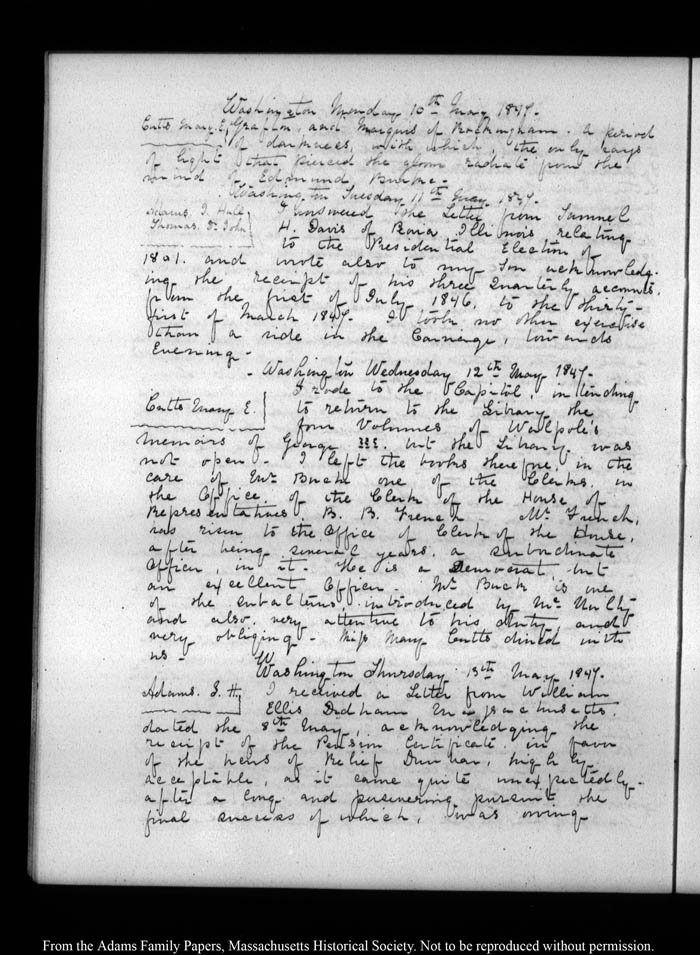 Washington Monday 10th May 1847.
Cutts Mary. E. Grafton, and Marquis of Rockingham. A period
of darkness, with which, the only rays
of light that pierced the gloom radiate from the
mind of Edmund Burke.
Washington Tuesday 11th May. 1847.
Adams. I. Hull
Thomas. Dr. John
I answered the Letter from Samuel
H. Davis of Illinois relating
to the Presidential Election of
1801. and wrote also to my Son acknowledg-
ing the receipt of his three Quarterly accounts,
from the first of July 1846, to the thirty-
first of March 1847. I took no other exercise
than a ride in the Carriage, towards
Evening.
Washington Wednesday 12th May 1847.
Cutts Mary E.
I rode to the Capitol, intending
to return to the Library the
four Volumes of Walpole's
memoirs of George III. but the Library was
not open. I left the books therefore, in the
care of Mr Buck one of the Clerks, in
the Office of the Clerk of the House of
Representatives, B. B. French. Mr. French,
has risen to the Office of Clerk of the House,
after being several years, a subordinate
Officer, in it. He is a Democrat, but
an excellent Officer. Mr Buck is one
of the subalterns, introduced by Mr.
and also very attentive to his duty, and
very obliging. Miss Mary Cutts dined with
us.
Washington Thursday 13th May 1847.
Adams. I. H.
I received a Letter from William
Ellis Dedham Massachusetts.
dated the 8th May, acknowledging the
receipt of the Pension Certificate, in favor
of the heirs of Relief highly
acceptable, as it came quite unexpectedly.
after a long and persevering pursuit the
final success of which, was owing
From the Adams Family Papers, Massachusetts Historical Society. Not to be reproduced without permission.